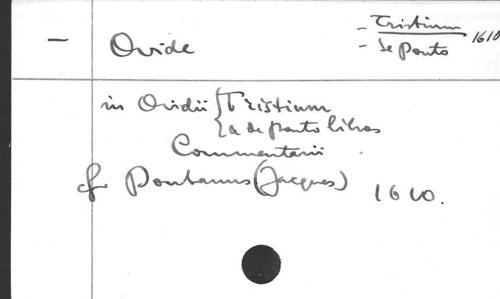 — Ovide
- Tristium 1610
- de Ponto
in Ovidii { Tristium
{ a de ponto libros
Commentarii
cfr Pontanus (Jacques) 1610.